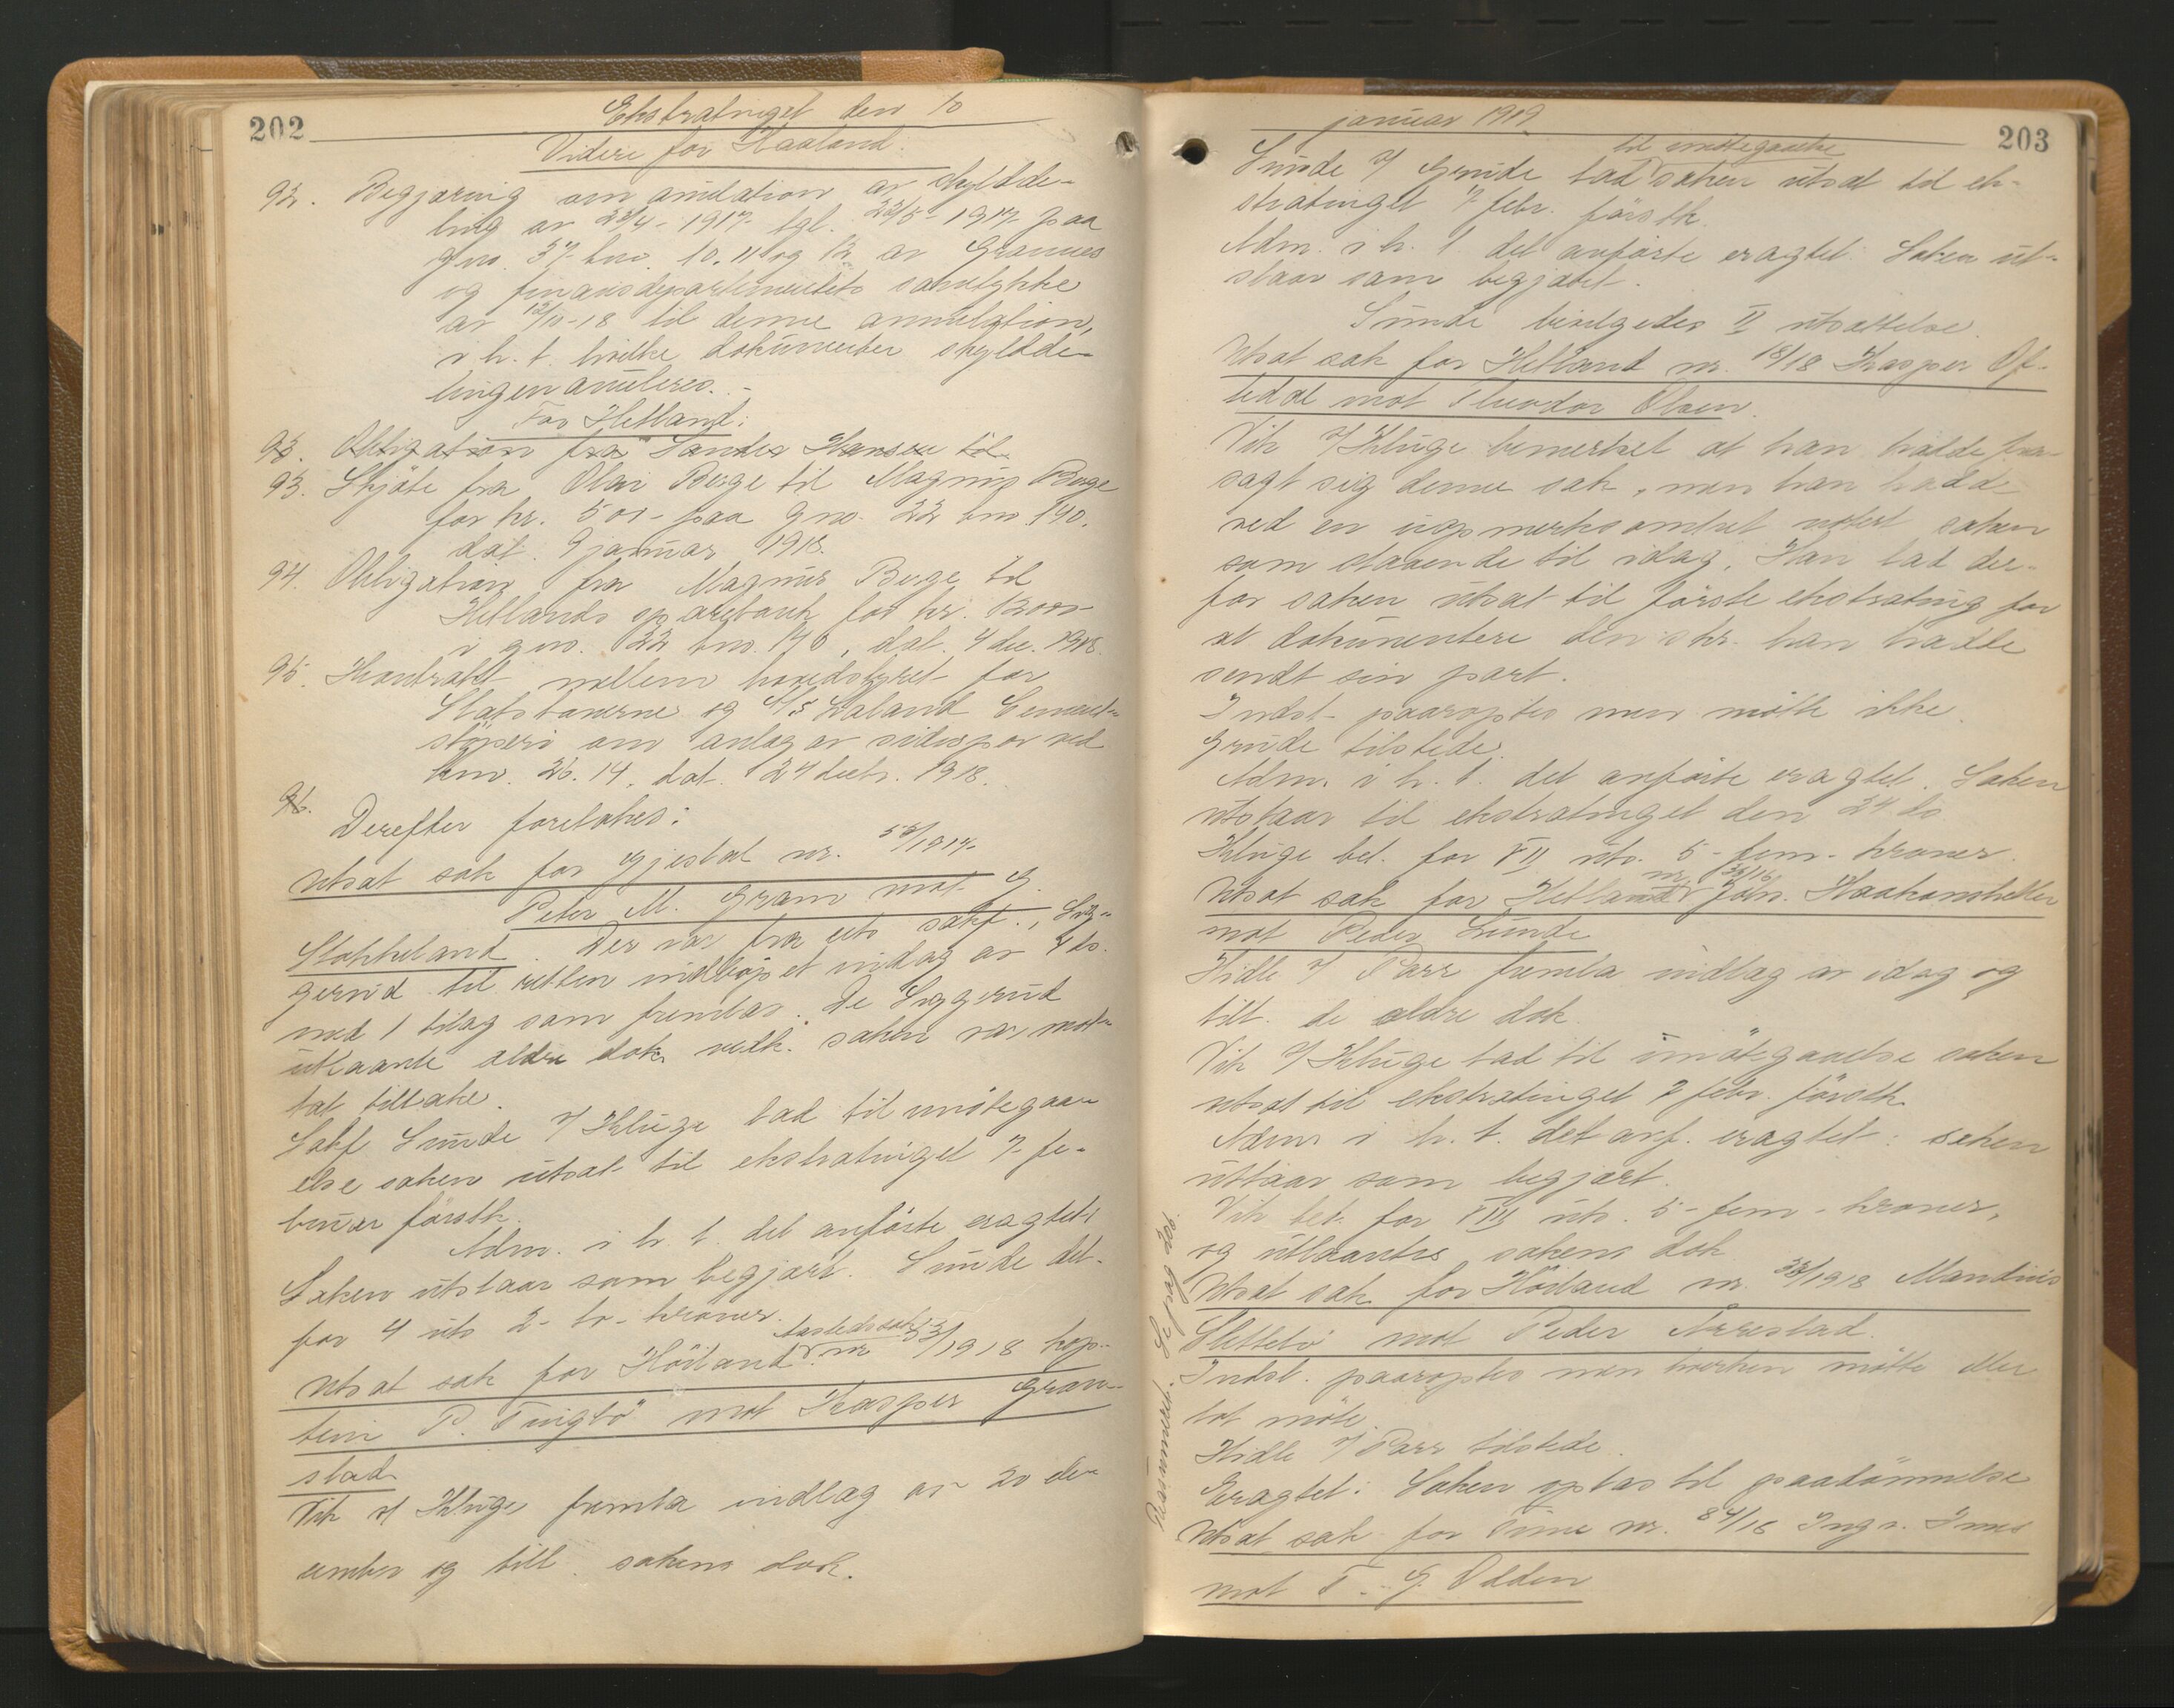 202
Ekstratinget den 10
Videre for Haaland.
92. Begjæring om anulation av skyldde-
ling av 28/4-1917 tgl. 22/5-1917 paa
gno. 37 bno. 10. 11 og 12 av Grannes
og finansdepartementets samtykke
av 12/10-18 til denne annulation,
i h. t. hvilke dokumenter skyldde-
lingen anuleres.-
For Hetland:
93. Obligation fra Hansen til
93. Skjöte fra Olai Berge til Magnus Berge
for kr. 500- paa gno. 22 bno 140.
dat. 9 januar 1918.
94. Obligation fra Magnus Berge til
Hetlands sparebank for kr. 12000-
i gno. 22 bno. 140, dat. 4 dec. 1918.
95. Kontrakt mellem hovedstyret for
Statsbanerne og A/S Laland Cement-
stöperi om anlæg av sidespor ved
km. 26.14. dat. 24 decbr. 1918.
96.
Derefter foretokes:
Utsat sak for Gjestal nr. 55/1917
Peter M. Gram mot G.
Stokkeland. Der var fra o.r.s. sakf. Sig-
gerud til retten indlöpet indlæg av 4 ds.
med 1 bilag som fremlas. De Siggerud
utlaante ældre dok. vedk. saken var mot-
tat tilbake.
Sakf Sunde v/ Kluge bad til imötegaa-
else saken utsat til ekstratinget 7 fe-
bruar förstk.
Adm. i h. t. det anförte eragtet:
Saken utstaar som begjært. Sunde bet.
for 4 uts 2- to- kroner.
Utsat sak for Höiland tastedssak nr 33/1918 kap-
tein P. Tingbö mot Kasper Gran-
stad
Vik v/ Kluge fremla indlæg av 20 de-
cember og till. sakens dok.
januar 1919
203
til imötegaaelse
Sunde v/ Grude bad saken utsat til ek-
stratinget 7 febr. förstk.
Adm. i h. t. det anförte eragtet: Saken ut-
staar som begjært.
Sunde bevilgedes II utsættelse.
Utsat sak for Hetland nr. 18/18 Kasper Of-
tedal mot Theodor Olsen.
Vik v/ Kluge bemerket at han hadde fra-
sagt sig denne sak, men han hadde
ved en uopmerksomhet notert saken
som staaende til idag. Han bad der-
for saken utsat til förste ekstrating for
at dokumentere den skr. han hadde
sendt sin part.
Indst. paaroptes men mötte ikke.
Grude tilstede.
Adm. i h. t. det anförte eragtet. Saken
utstaar til ekstratinget den 24 ds
Kluge bet. for VII uts. 5- fem- kroner.
Utsat sak for Hetland nr. 32/18 Joh. Haakonsheller
mot Peder Lunde
Hidle v/ Parr fremla indlæg av idag og
till. de ældre dok.
Vik v/ Kluge bad til imötegaaelse saken
utsat til ekstratinget 7 febr. förstk.
Adm i h. t. det anf. eragtet: saken
utstaar som begjært.
Vik bet. for VIII uts. 5- fem- kroner.
og utlaantes sakens dok
Utsat sak for Höiland nr. 38/1918 Mandius
Slettebö mot Peder Årrestad.
Indst. paaroptes men hverken mötte eller
lot möte.
Hidle v/ Parr tilstede.
Eragtet: Saken optas til paadömmelse
Utsat sak for Time nr. 84/18 Ingv. Imes
mot T. G. Odden
Ressumeret. Se pag 206.